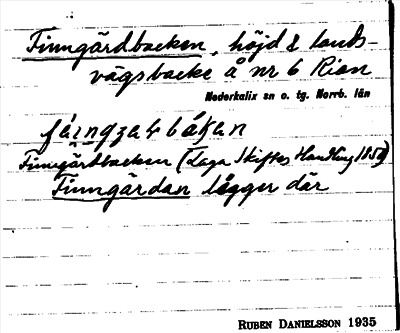 Finngårdbacken, höjd & lands-
vägsbacke å nr 6 Rian
Nederkalix sn o. tg. Norrb. län
Finngårdbacken (Laga Skiftes Handling 1850)
Finngårdan lägger där
RUBEN DANIELSSON 1935